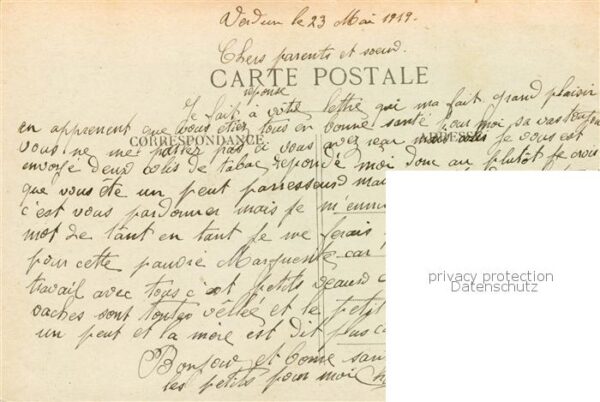 Verdun le 23 Mai 1919.
Chers parents et soeur.
CARTE POSTALE
Je fait réponse à votre lettre qui ma fait grand plaisir
en apprenent que vous étiez tous en bonne santé pour moi sa vas toujour
CORRESPONDANCE
ADRESSE
vous ne me parlez pas si vous avez reçu mais je vous est
envoyé deux colis de tabac répondé moi donc au plutôt je crois
que vous éte un peut paresseux mai
c'est vous pardonner mais je m'ennui
mot de tant en tant je me ferais
pour cette pauvre Marguerite car
travail avec tous c'est petits veaux
vaches sont toutes vêllée et le petit
un peut et la mère est dit plus c
Bonjour et bonne san
les petits pour moi
privacy protection
Datenschutz